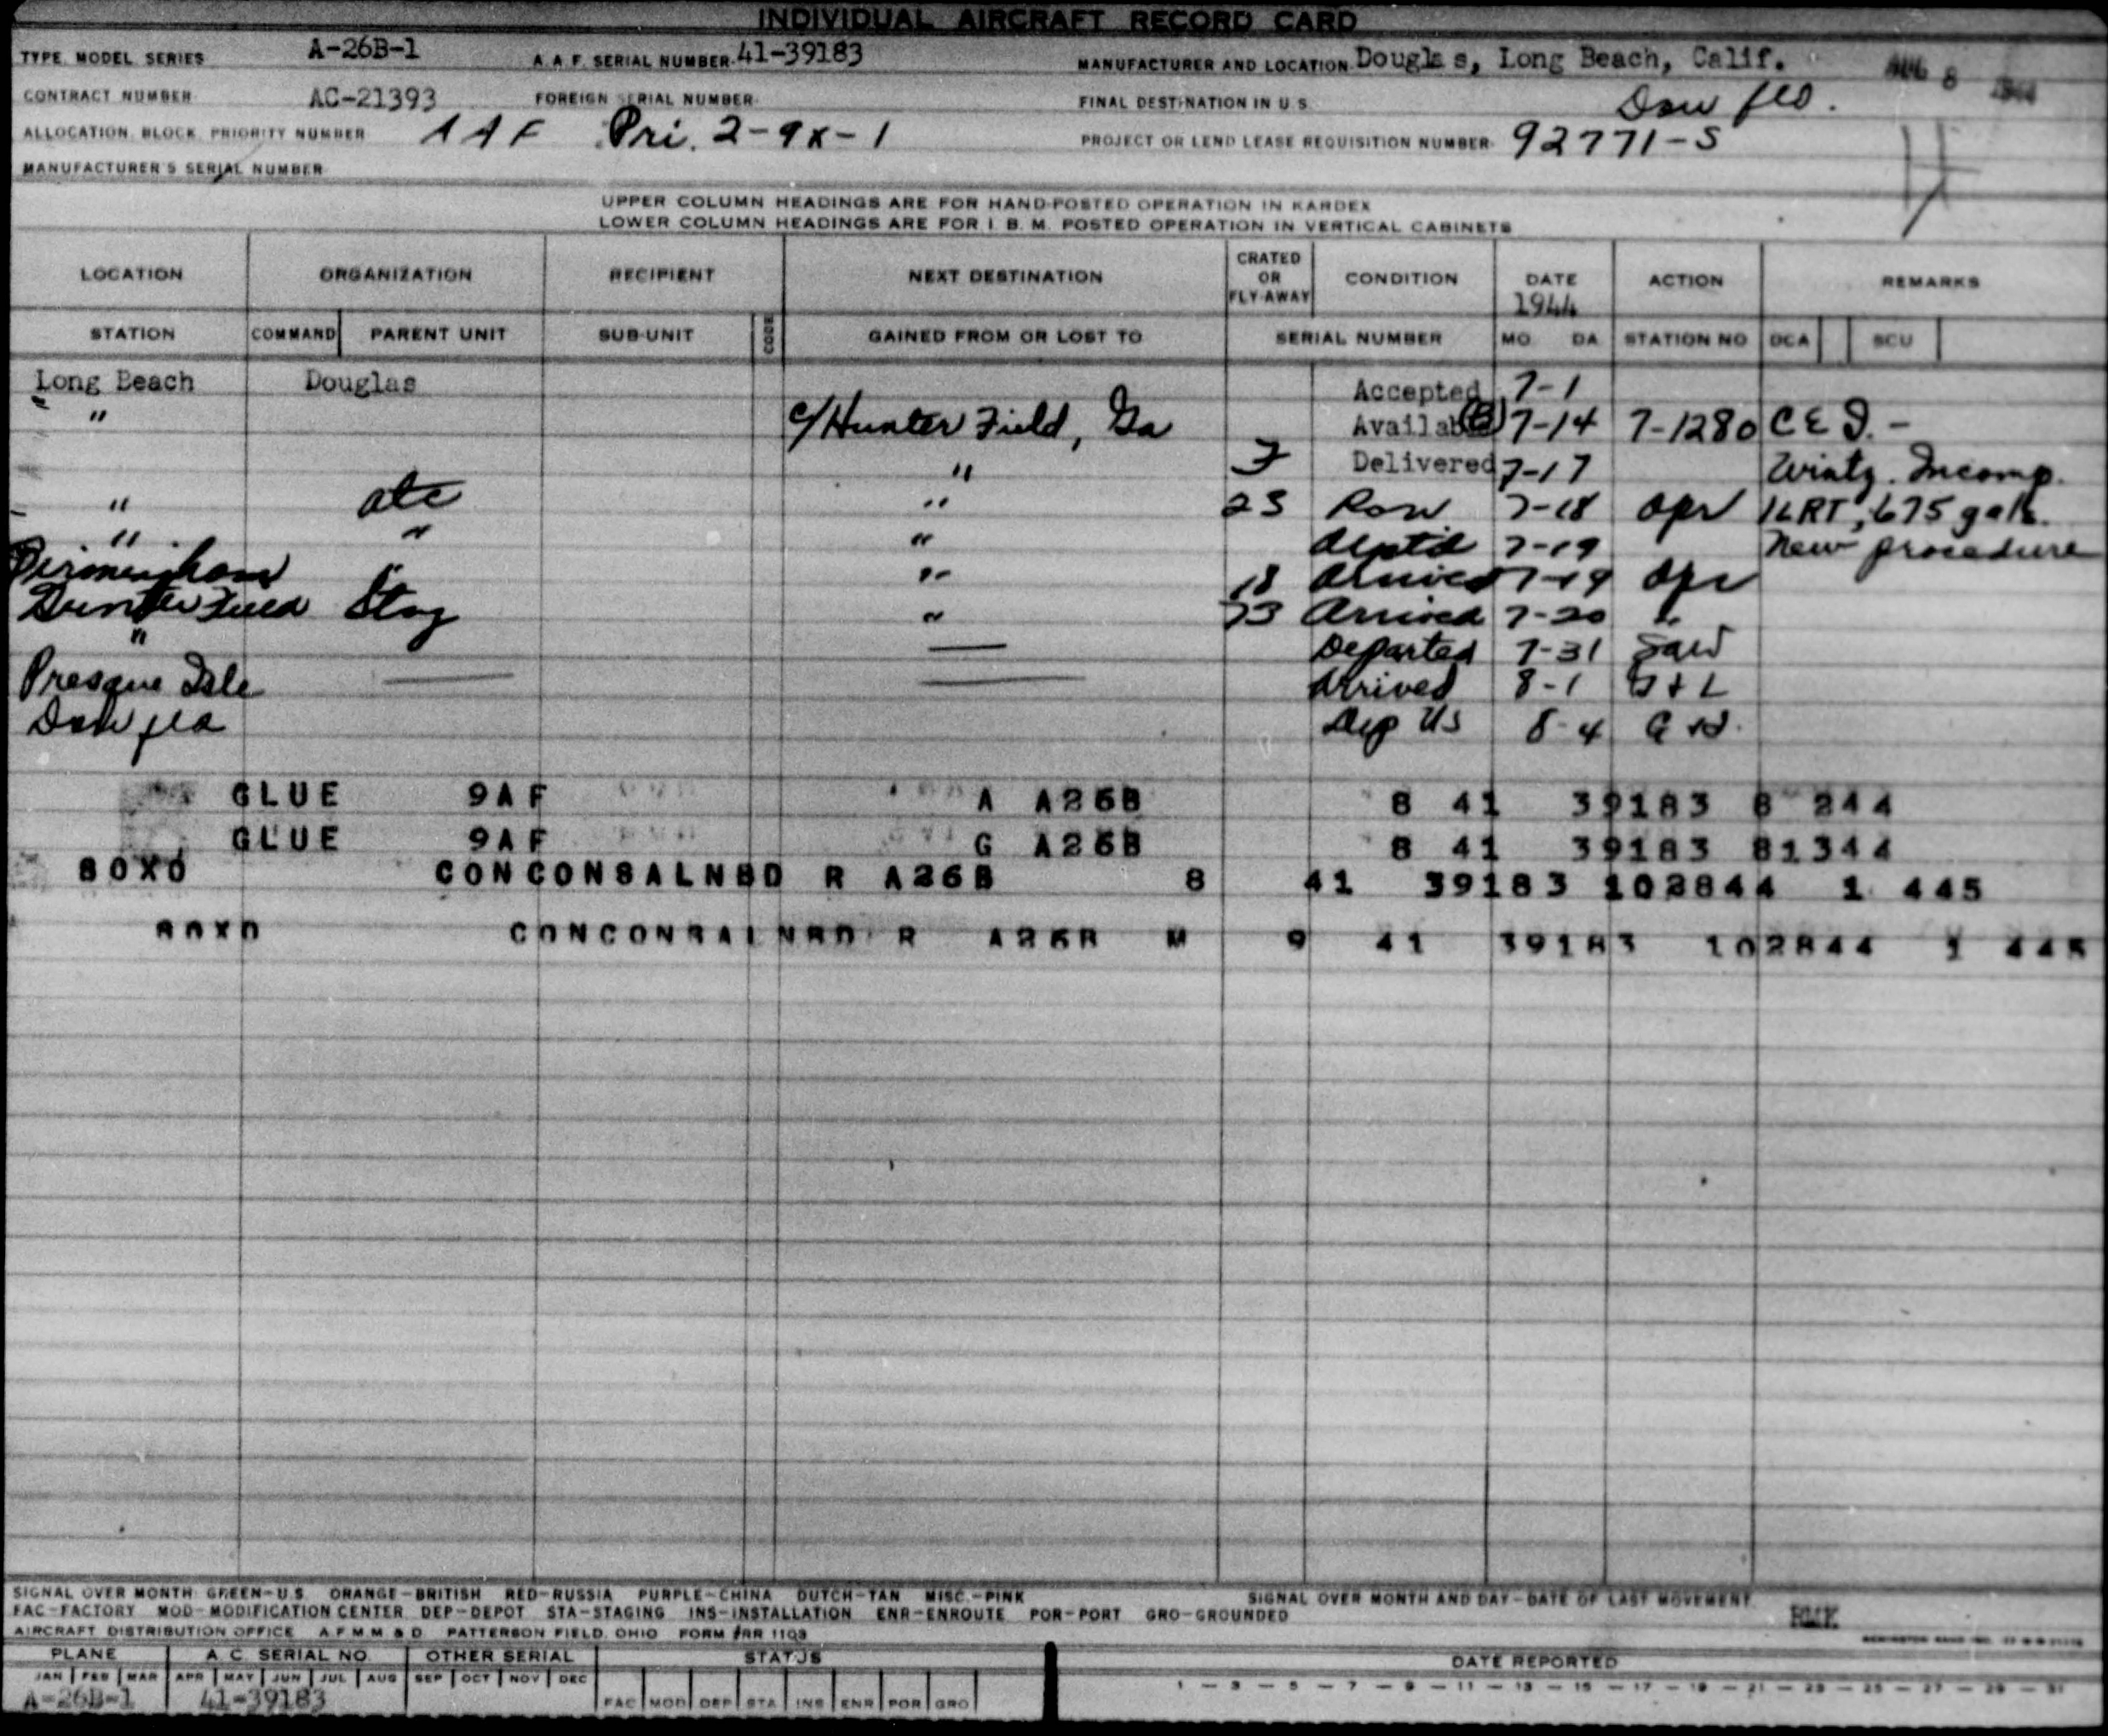 INDIVIDUAL AIRCRAFT RECORD CARD
TYPE, MODEL, SERIES A-26B-1 A.A.F. SERIAL NUMBER 41-39183 MANUFACTURER AND LOCATION Douglas, Long Beach, Calif. AUG 8
CONTRACT NUMBER AC-21393 FOREIGN SERIAL NUMBER FINAL DESTINATION IN U.S. Dow fld.
ALLOCATION, BLOCK, PRIORITY NUMBER AAF Pri. 2-9x-1 PROJECT OR LEND LEASE REQUISITION NUMBER 92771-S
MANUFACTURER'S SERIAL NUMBER
UPPER COLUMN HEADINGS ARE FOR HAND-POSTED OPERATION IN KARDEX
LOWER COLUMN HEADINGS ARE FOR I. B. M. POSTED OPERATION IN VERTICAL CABINETS
LOCATION ORGANIZATION RECIPIENT NEXT DESTINATION CRATED OR FLY-AWAY CONDITION DATE 1944 ACTION REMARKS
STATION COMMAND PARENT UNIT SUB-UNIT CODE GAINED FROM OR LOST TO SERIAL NUMBER MO DA STATION NO DCA SCU
Long Beach Douglas Accepted 7-1
" c/Hunter Field, Ga Available (B) 7-14 7-1280 C E D. -
" F Delivered 7-17 Wintz. Incomp.
" atc " 23 Ron 7-18 Opr 1LRT, 675 gals.
" " " deptd 7-19 New procedure
Birmingham " " 18 Arrived 7-19 Opr
Hunter Field Stag " 73 Arrived 7-20 "
" — Departed 7-31 SAW
Presque Isle — — Arrived 8-1 G+L
Dow fld Dep US 8-4
GLUE 9AF A A26B 8 41 39183 8 244
GLUE 9AF G A26B 8 41 39183 81344
80XD CONCONSALNBD R A26B 8 41 39183 102844 1 445
80XD CONCONSALNBD R A26B M 9 41 39183 102844 1 445
SIGNAL OVER MONTH: GREEN-U.S. ORANGE-BRITISH RED-RUSSIA PURPLE-CHINA DUTCH-TAN MISC.-PINK SIGNAL OVER MONTH AND DAY-DATE OF LAST MOVEMENT
FAC-FACTORY MOD-MODIFICATION CENTER DEP-DEPOT STA-STAGING INS-INSTALLATION ENR-ENROUTE POR-PORT GRO-GROUNDED
AIRCRAFT DISTRIBUTION OFFICE A.F.M.M.&D. PATTERSON FIELD, OHIO FORM 1103
PLANE A.C. SERIAL NO. OTHER SERIAL STATUS DATE REPORTED
JAN FEB MAR APR MAY JUN JUL AUG SEP OCT NOV DEC FAC MOD DEP STA INS ENR POR GRO 1 - 3 - 5 - 7 - 9 - 11 - 13 - 15 - 17 - 19 - 21 - 23 - 25 - 27 - 29 - 31
A-26B-1 41-39183